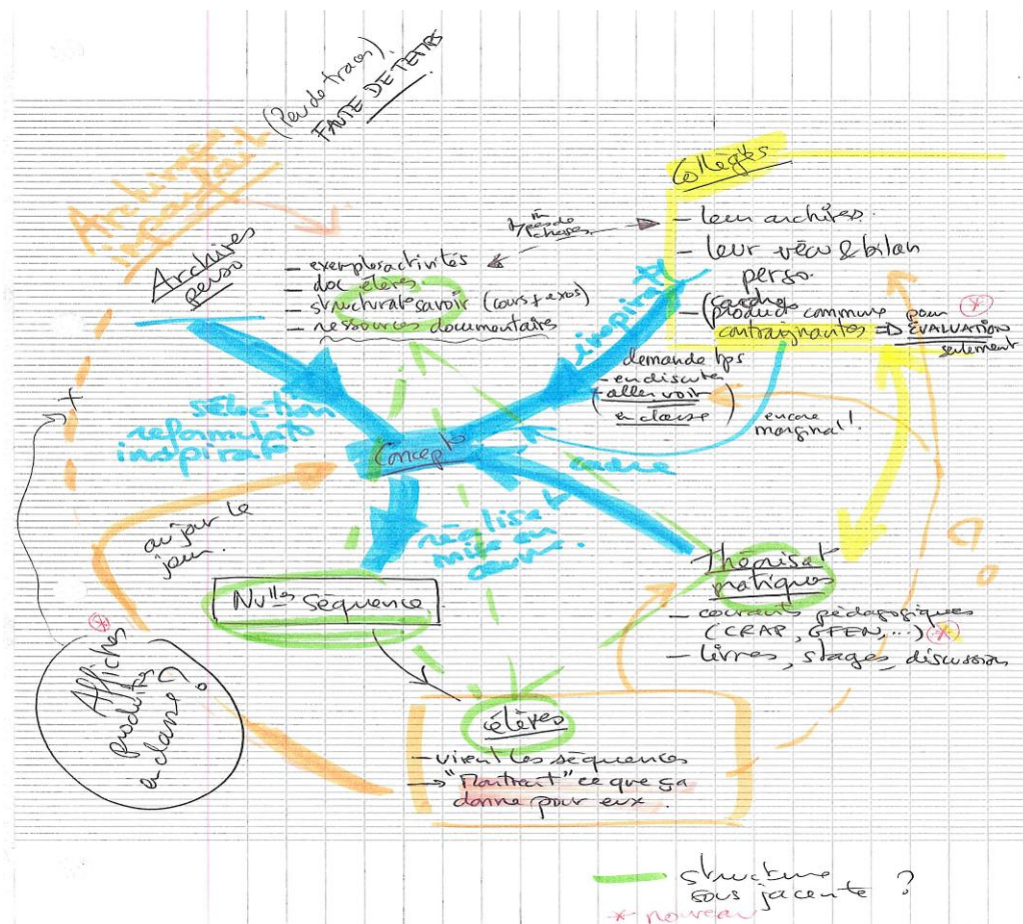 (Peu de traces).
FAUTE DE TEMPS.
Archivage
imparfait
Archives
perso
– exemples activités
– doc élèves
– structurat° savoir (cours + exos)
– ressources documentaires
types de
choses
Collègues
– leurs archives.
– leur vécu & bilan
perso.
product° commune pour *
contraignantes => EVALUATION
seulement
inspirat°
demande tps
– en discuter
+ aller voir
en classe
encore
marginal!
sélection
reformulat°
inspirat°
Concept°
cadre
au jour le
jour.
réalisat°
mise en
œuvre.
Nvlles séquence
Théorisat°
pratiques
– courants pédagogiques
(CRAP, GFEN, ...) *
– livres, stages, discussion
*
Affiches
produites
en classe ?
élèves
– vivent les séquences
→ "Montrent" ce que ça
donne pour eux.
structure
sous jacente ?
* nouveau